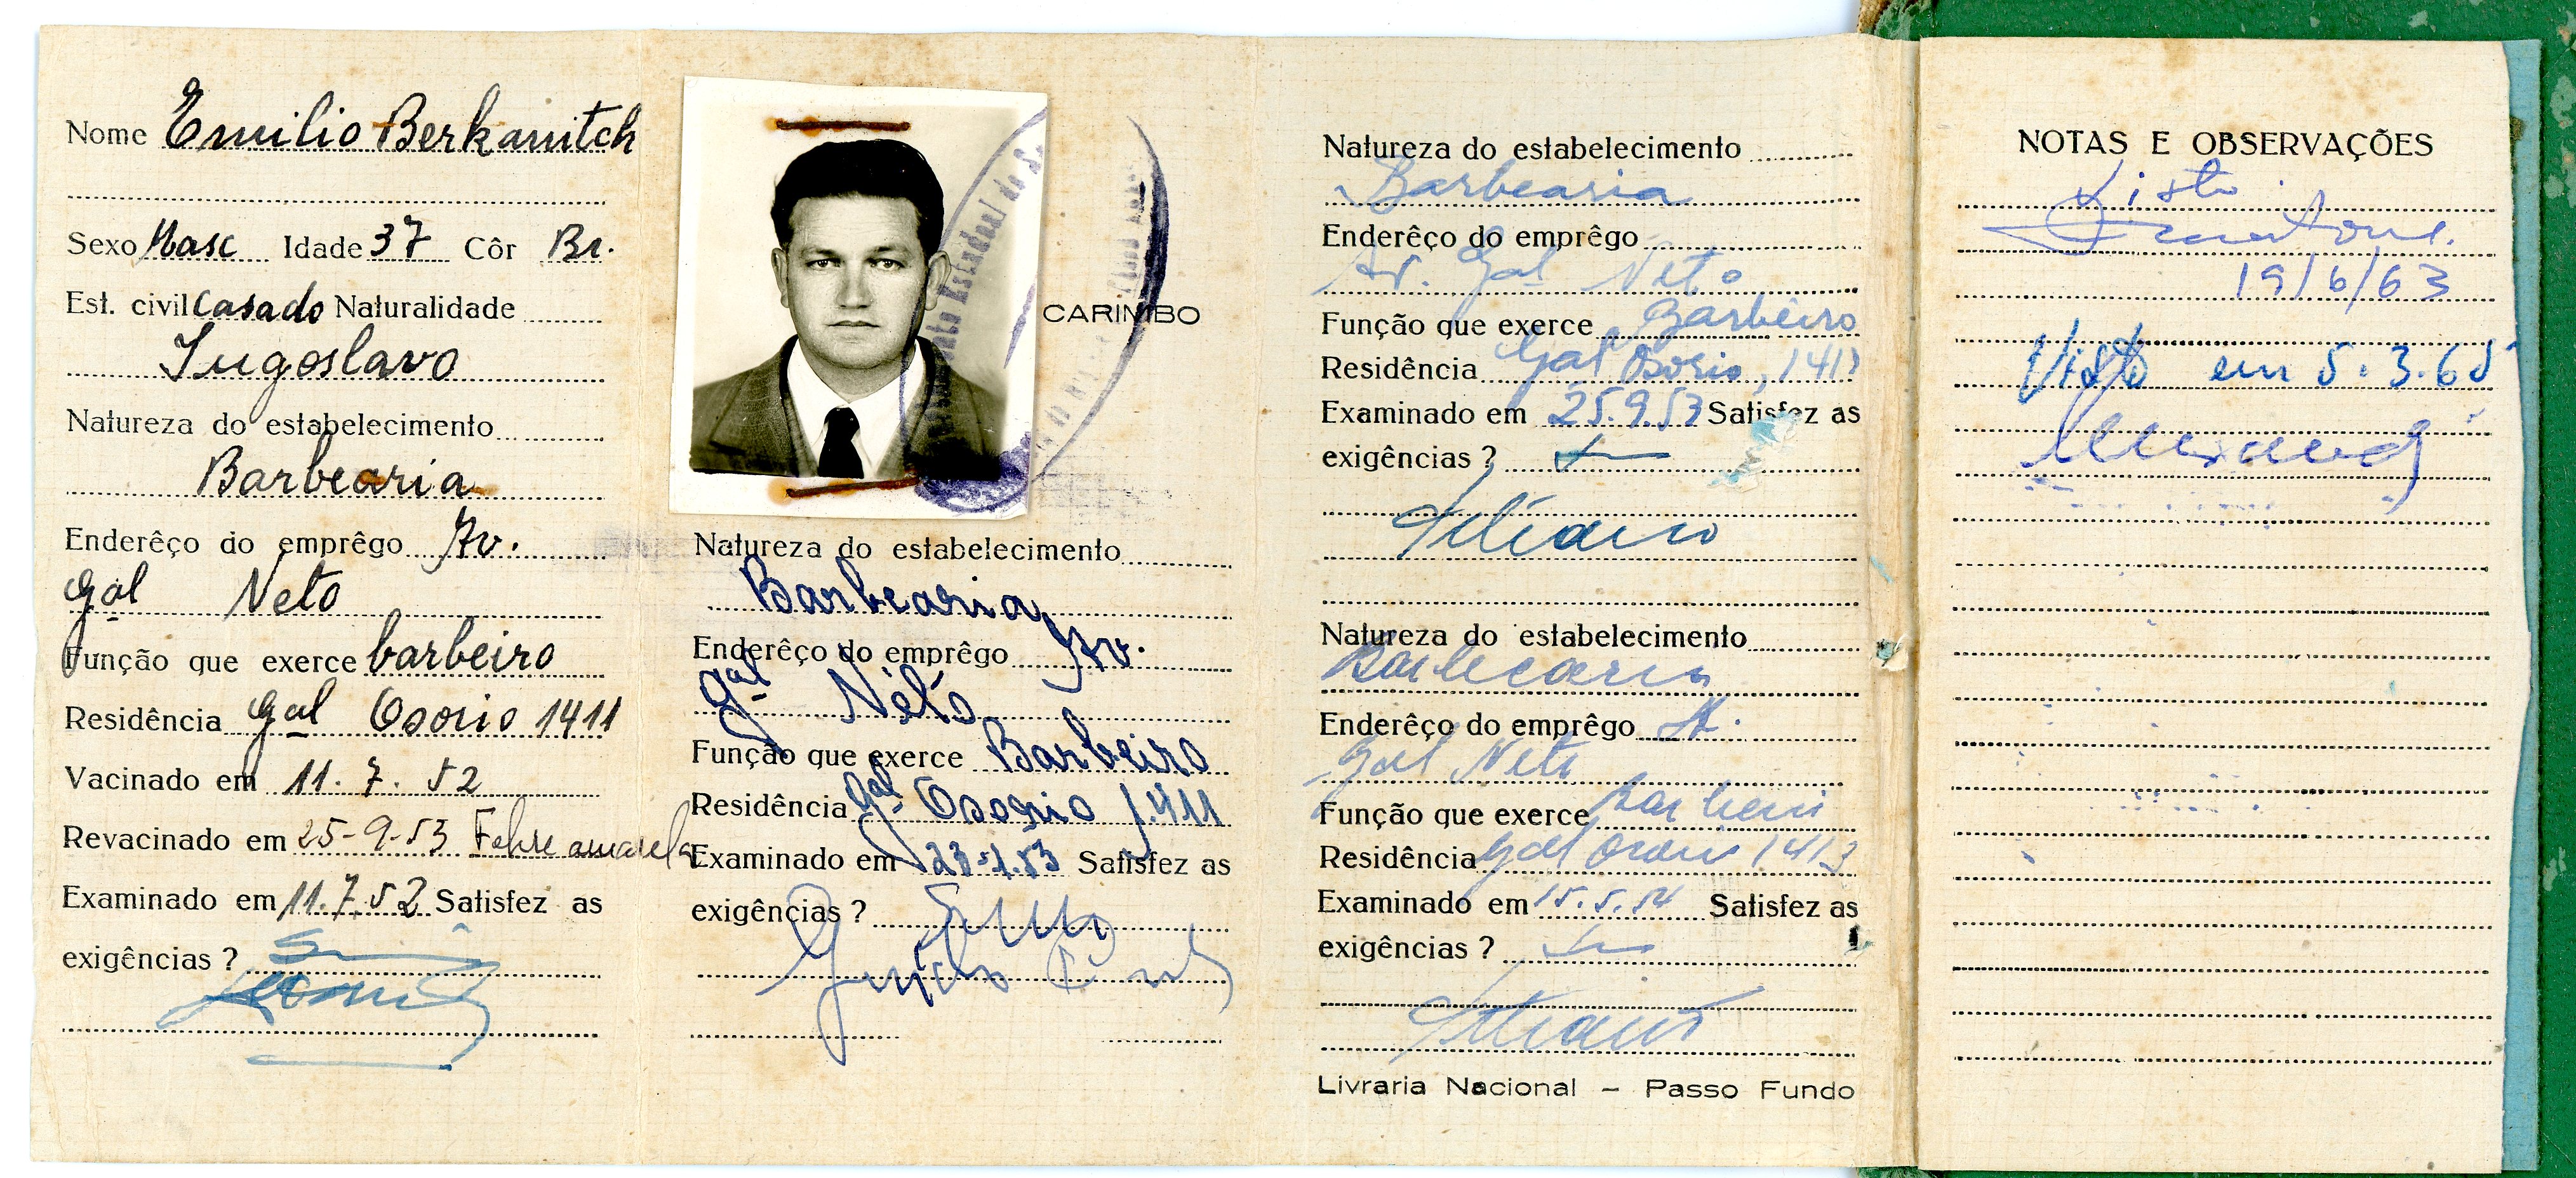 Nome Emilio Berkanitch
Sexo Masc Idade 37 Côr Br.
Est. civil Casado Naturalidade
Iugoslavo
Natureza do estabelecimento
Barbearia
Enderêço do emprêgo Av.
Gal Neto
Função que exerce barbeiro
Residência Gal Osorio 1411
Vacinado em 11.7.52
Revacinado em 25-9-53 Febre amarela
Examinado em 11.7.52 Satisfez as
exigências ?
CARIMBO
Natureza do estabelecimento
Barbearia
Enderêço do emprêgo Av.
Gal Neto
Função que exerce Barbeiro
Residência Gal Osorio 1.411
Examinado em 23.1.53 Satisfez as
exigências ?
Natureza do estabelecimento
Barbearia
Enderêço do emprêgo
Av. Gal Neto
Função que exerce Barbeiro
Residência Gal Osorio, 1411
Examinado em 25.9.53 Satisfez as
exigências ?
Natureza do estabelecimento
Barbearia
Enderêço do emprêgo A.
Gal Neto
Função que exerce barbeiro
Residência Gal Osorio 1413
Examinado em 15.5.54 Satisfez as
exigências ?
Livraria Nacional – Passo Fundo
NOTAS E OBSERVAÇÕES
Visto
19/6/63
Visto em 5.3.65